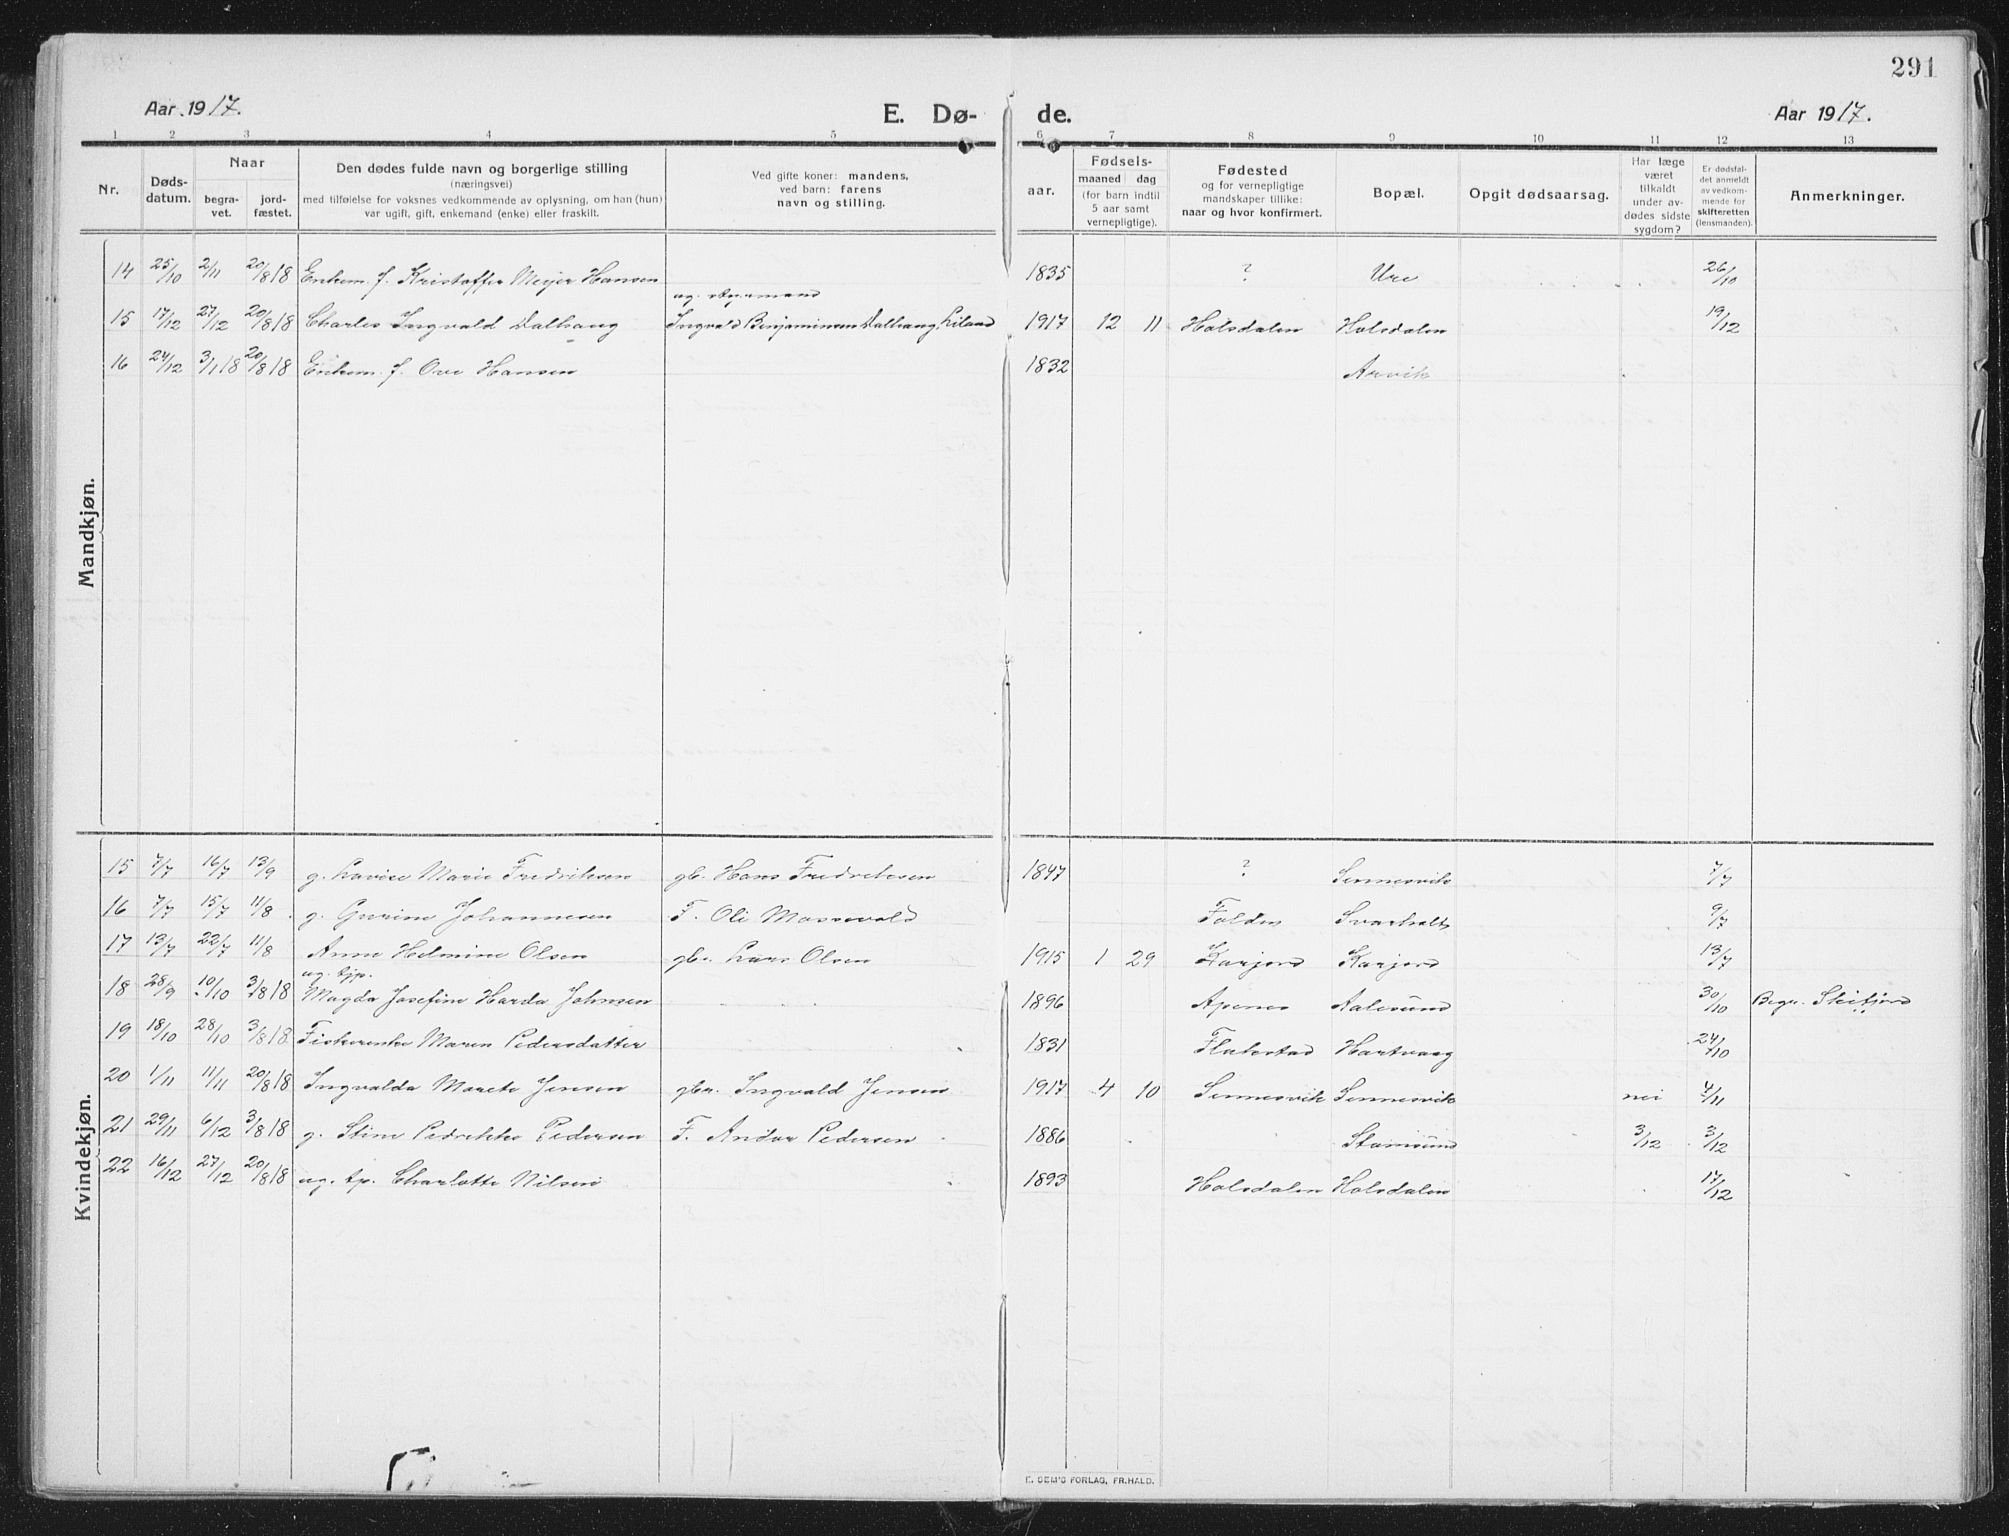 291
Aar 1917.
E. Dø-
de.
Aar 1917.
1 2 3 4 5 6 7 8 9 10 11 12 13
Nr.
Døds-
datum.
Naar
begra-
vet.
jord-
fæstet.
Den dødes fulde navn og borgerlige stilling
(næringsvei)
med tilføielse for voksnes vedkommende av oplysning, om han (hun)
var ugift, gift, enkemand (enke) eller fraskilt.
Ved gifte koner: mandens,
ved barn: farens
navn og stilling.
aar.
Fødsels-
maaned dag
(for barn indtil
5 aar samt
vernepligtige).
Fødested
og for vernepligtige
mandskaper tillike:
naar og hvor konfirmert.
Bopæl.
Opgit dødsaarsag.
Har læge
været
tilkaldt
under av-
dødes sidste
sygdom?
Er dødsfal-
det anmeldt
av vedkom-
mende for
skifteretten
(lensmanden).
Anmerkninger.
Mandkjøn.
14 25/10 2/11 20/8 18 Enkem. f. Kristoffer Meyer Hansen 1835 ? Ure 26/10
ug. styrmand
15 17/12 27/12 20/8 18 Charles Ingvald Dalhaug Ingvald Benjaminsen Dalhaug Liland 1917 12 11 Holsdalen Holsdalen 19/12
16 24/12 3/1 18 20/8 18 Enkem. f. Ove Hansen 1832 Arvik
Kvindekjøn.
15 7/7 16/7 13/9 g. Lovise Marie Fredriksen gb. Hans Fredriksen 1847 ? Sennesvik 7/7
16 7/7 15/7 11/8 g. Gurine Johannesen F. Oli Mossevold Folden Svarholt 9/7
17 13/7 22/7 11/8 Anna Helmine Olsen gbr. Lars Olsen 1915 1 29 Karjord Karjord 13/7
ug. tjp.
18 28/9 10/10 3/8 18 Magda Josefine Harda Johnsen 1896 Apenes Aalesund 30/10 Begr. Skifjord
19 18/10 28/10 3/8 18 Fiskerenke Maren Pedersdatter 1831 Flakstad Hartvaag 24/10
20 1/11 11/11 20/8 18 Ingvalda Marete Jensen gbr. Ingvald Jensen 1917 4 10 Sennesvik Sennesvik nei 4/11
21 29/11 6/12 3/8 18 g. Stine Pedrikke Pedersen F. Andor Pedersen 1886 Stamsund 3/12 3/12
22 16/12 27/12 20/8 18 ug. tp. Charlotte Nilsen 1893 Holsdalen Holsdalen 17/12
E. SEM'S FORLAG, FR.HALD.